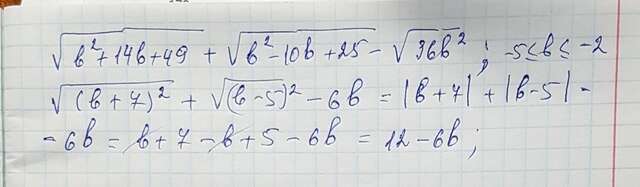 √(b²+14b+49) + √(b²-10b+25) - √(36b²) ; -5≤b≤-2
√((b+7)²) + √((b-5)²) - 6b = |b+7| + |b-5| -
- 6b = b+7 - b+5 - 6b = 12 - 6b ;